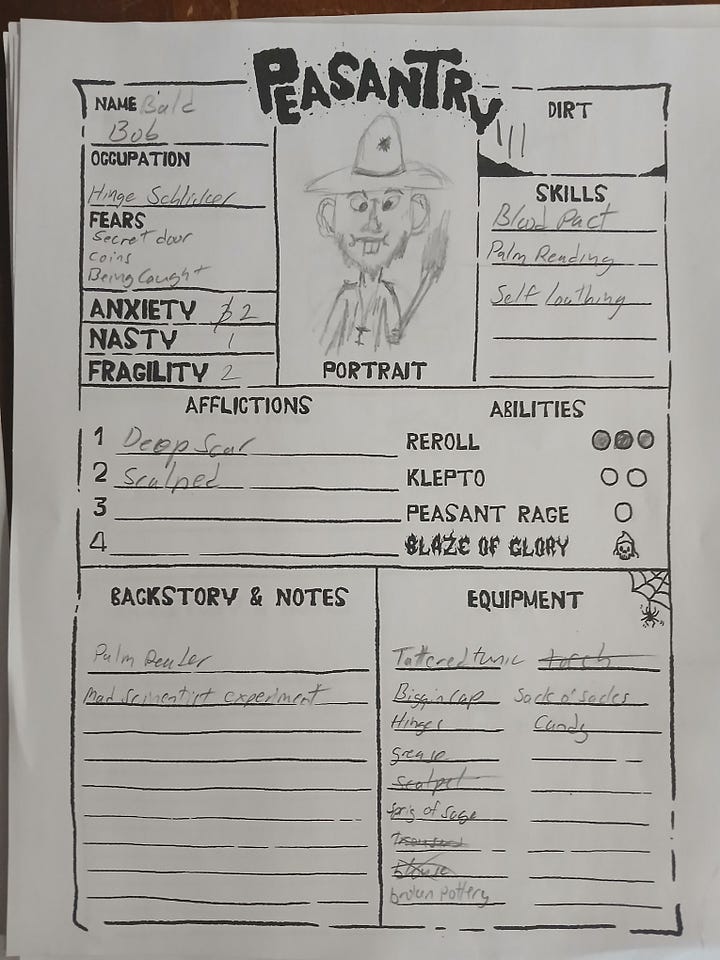 PEASANTRY
NAME Bald
Bob
OCCUPATION
Hinge Schlicker
FEARS
Secret door
Coins
Being Caught
ANXIETY 2
NASTY 1
FRAGILITY 2
PORTRAIT
DIRT
SKILLS
Blood Pact
Palm Reading
Self loathing
AFFLICTIONS
1 Deep Scar
2 Scalped
3
4
ABILITIES
REROLL
KLEPTO
PEASANT RAGE
BLAZE OF GLORY
BACKSTORY & NOTES
Palm Reader
Mad Scientist experiment
EQUIPMENT
Tattered tunic torch
Biggin cap Sack o' sacks
Hinges Candy
grease
scalpel
sprig of sage
broken pottery